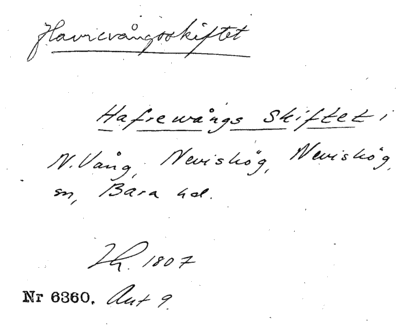 Havrevångsskiftet
Hafrewångs Skiftet i
N. Vång, Nevishög, Nevishög
sn, Bara hd.
1807
Nr 6360. Akt 9.